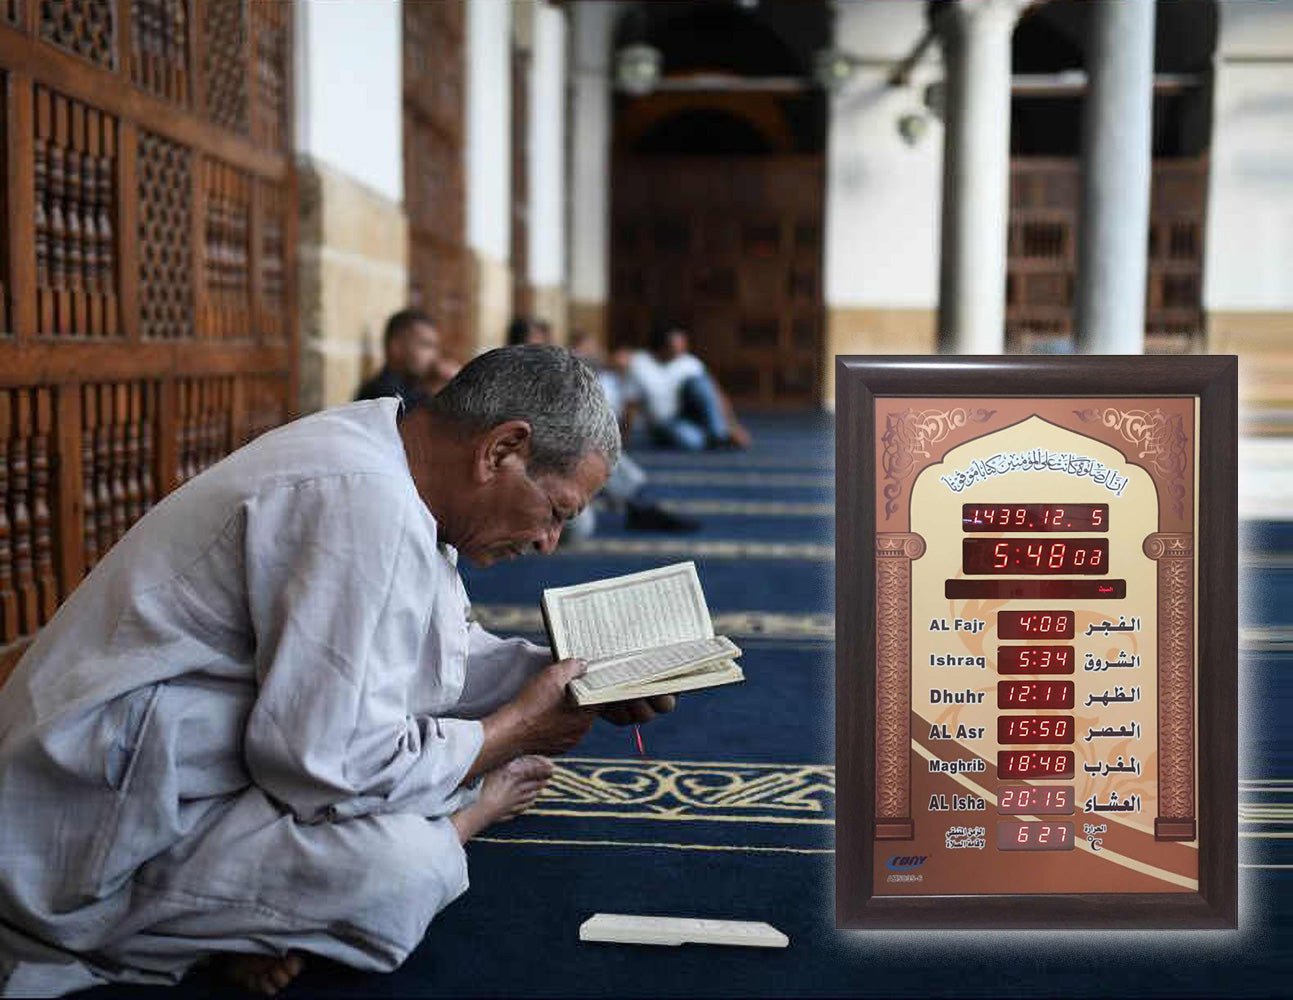 إن الصلوة كانت على المؤمنين كتابا موقوتا
1439.12. 5
5:48 03
السبت
AL Fajr 4:08 الفجر
Ishraq 5:34 الشروق
Dhuhr 12:11 الظهر
AL Asr 15:50 العصر
Maghrib 18:48 المغرب
AL Isha 20:15 العشاء
الزمن المتبقي لاقامة الصلاة 6 27 الحرارة °C
CRONY